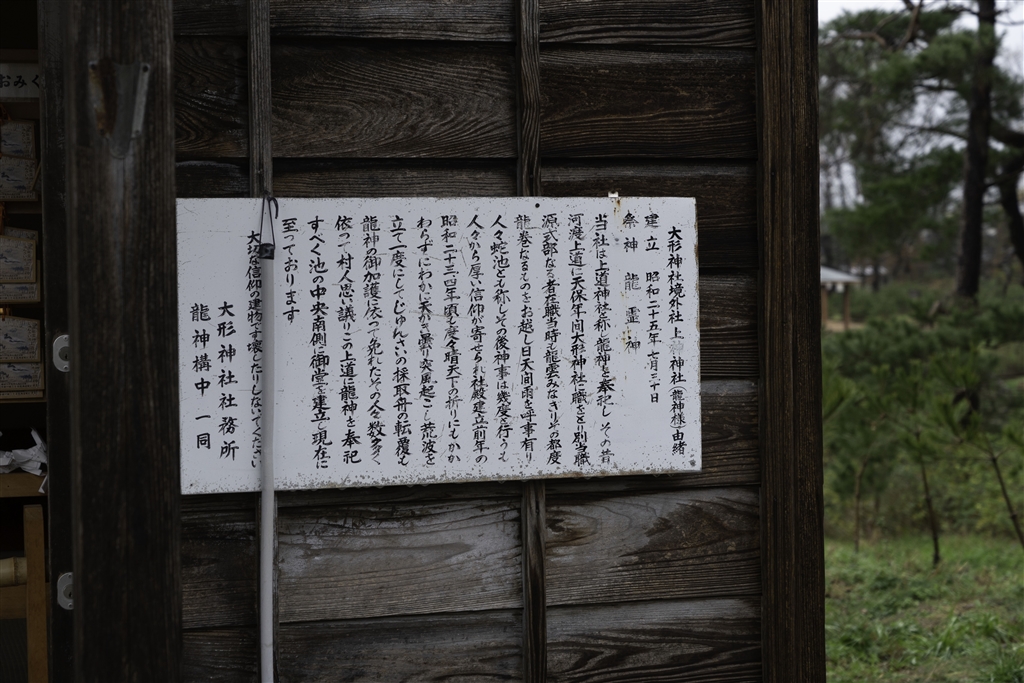 大形神社境外社上 神社(龍神様)由緒
建立 昭和二十五年七月三十日
祭神 龍霊神
当社は上道神社と称し龍神を奉祀しその昔
河渡上道に天保年間大形神社に職をとり別当職
源式部なる者在職当時も龍雲みなぎりその都度
龍巻なるものをお越し日天間雨を乎事有り
人々蛇池とも称しその後神事は幾度を行うも
人々から厚い信仰が寄せられ社殿建立前年の
昭和二十三、四年頃も度々晴天下の折りにもかか
わらずにわかに天がき曇り突風起こし荒波を
立て一度にしてじゅんさいの採取舟の転覆も
龍神の御加護に依って免れたその人々数多く
依って村人思い議りこの上道に龍神を奉祀
すべく池の中央南側に御堂を建立し現在に
至っております
大切な信仰の建物です壊したりしないでください
大形神社社務所
龍神構中一同
おみく